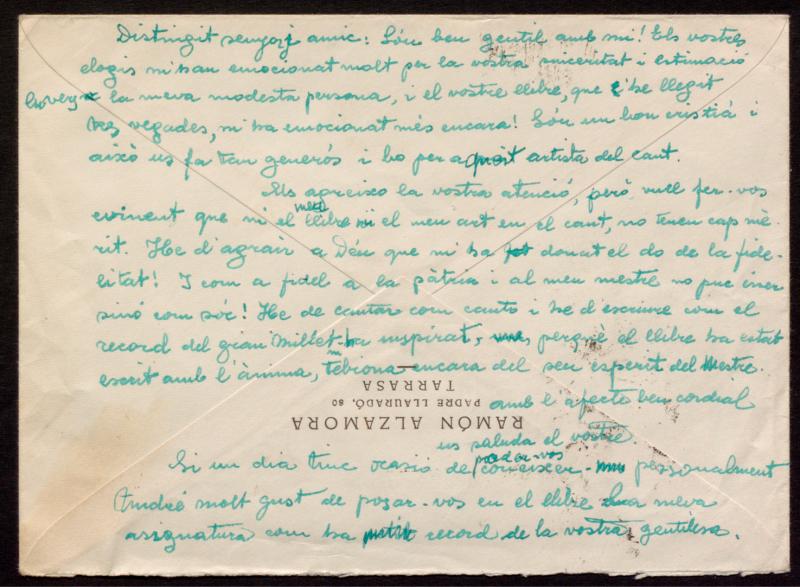 Distingit senyor i amic: Sóu ben gentil amb mi! Els vostres
elogis m'han emocionat molt per la vostra sinceritat i estimació
la meva modesta persona, i el vostre llibre, que he llegit
vegades, m'ha emocionat més encara! Sóu un bon cristiá i
això us fa tan generós i bo per a artista del cant.
Els agreixo la vostra atenció, però vull fer-vos
evinent que ni el meu llibre ni el meu art en el cant, no tenen cap mè-
rit. He d'agrair a Déu que m'ha donat el do de la fide-
litat! I com a fidel a la pàtria i al meu mestre no puc ésser
sinó com sóc! He de cantar com canto i he d'escriure com el
record del gran Millet ha inspirat, perquè el llibre ha estat
escrit amb l'ànima, encara del seu esperit del Mestre.
amb l'afecte ben cordial
us saluda el vostre
RAMÓN ALZAMORA
PADRE LLAURADÓ, 80
TARRASA
Si un dia tinc ocasió de poder-vos conèixer personalment
tindré molt gust de posar-vos en el llibre la meva
assignatura com ha record de la vostra gentilesa.